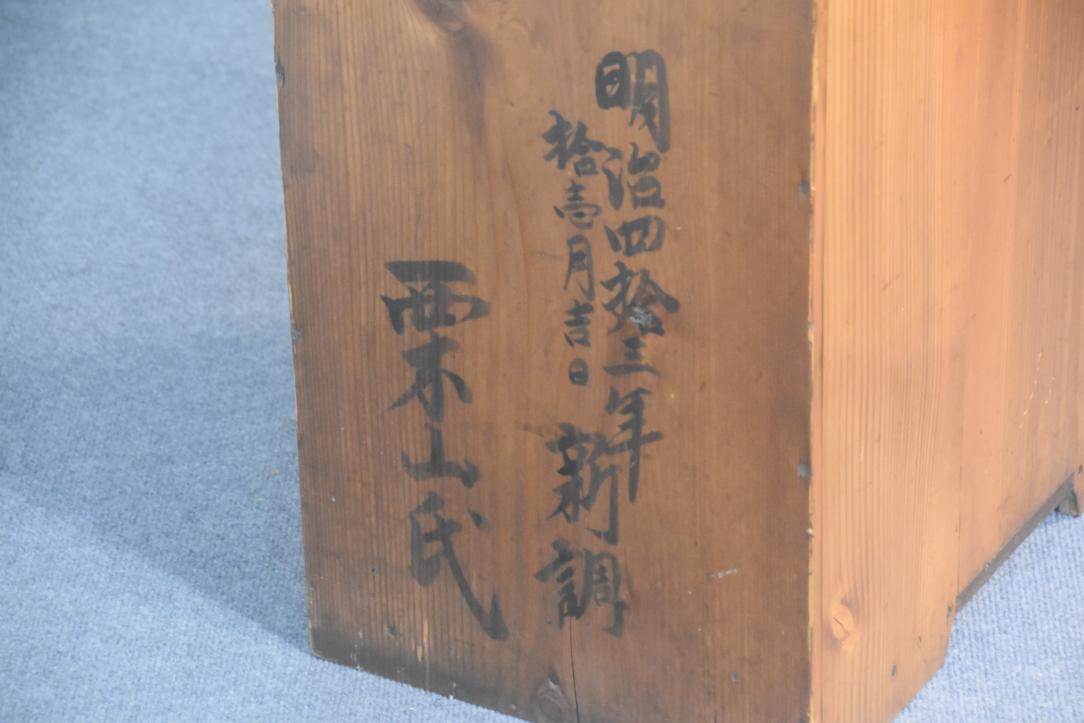 明治四拾三年
拾壱月吉日
新調
栗山氏